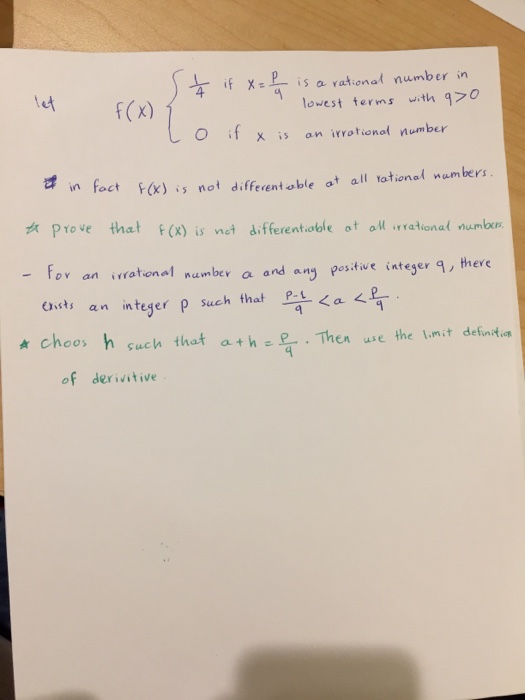 let f(x) { 1/4 if x = p/q is a rational number in
lowest terms with q>0
0 if x is an irrational number
in fact f(x) is not differentable at all rational numbers.
☆ prove that f(x) is not differentiable at all irrational numbers.
- For an irrational number a and any positive integer q, there
exists an integer p such that p-1/q < a < p/q .
☆ choos h such that a+h = p/q . Then use the limit definition
of derivitive.